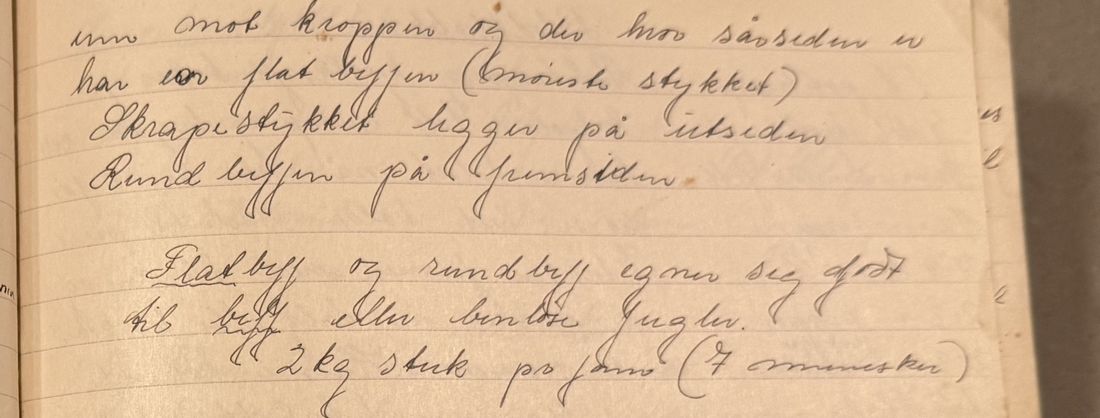 inn mot kroppen og der hvor sårsiden er
har en flat byffen (møreste stykket)
Skrapestykket ligger på utsiden
Rund byffen på fremsiden
Flatbyff og rundbyff egner seg godt
til byff eller benløse fugler.
2 kg stek pr (7 mennesker)